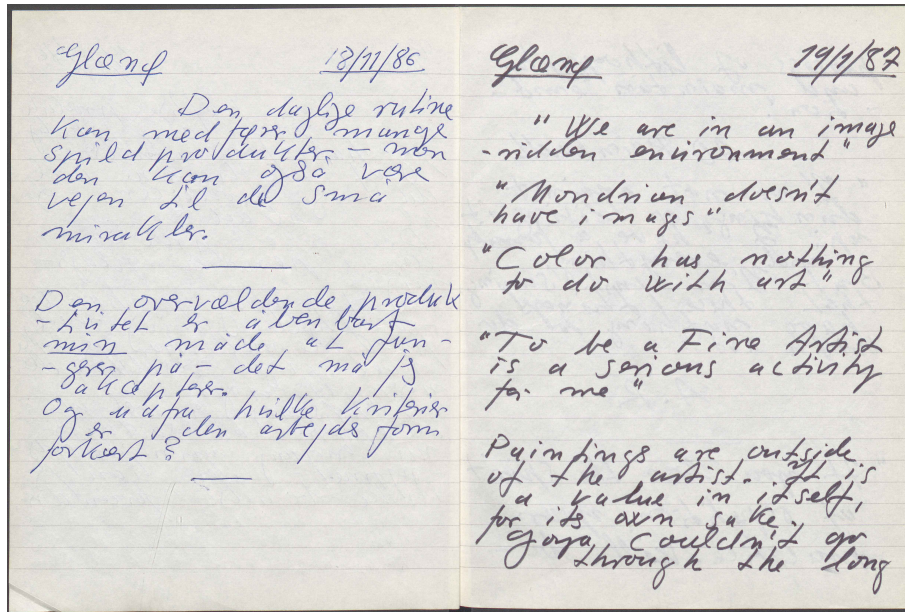 Glænø 18/11/86
Den daglige rutine
kan medfører mange
spildprodukter – men
den kan også være
vejen til de små
mirakler.
Den overvældende produk
-tivitet er åbenbart
min måde at fun-
-gerer på – det må jeg
akcepterer.
Og udfra hvilke kriterier
er den arbejdsform
forkert?
Glænø 19/1/87
"We are in an image
-ridden environment"
"Mondrian doesn't
have images"
"Color has nothing
to do with art"
"To be a Fine Artist
is a serious activity
for me"
Paintings are outside
of the artist. It is
a value in itself,
for its own sake.
Goya couldn't go
through the long